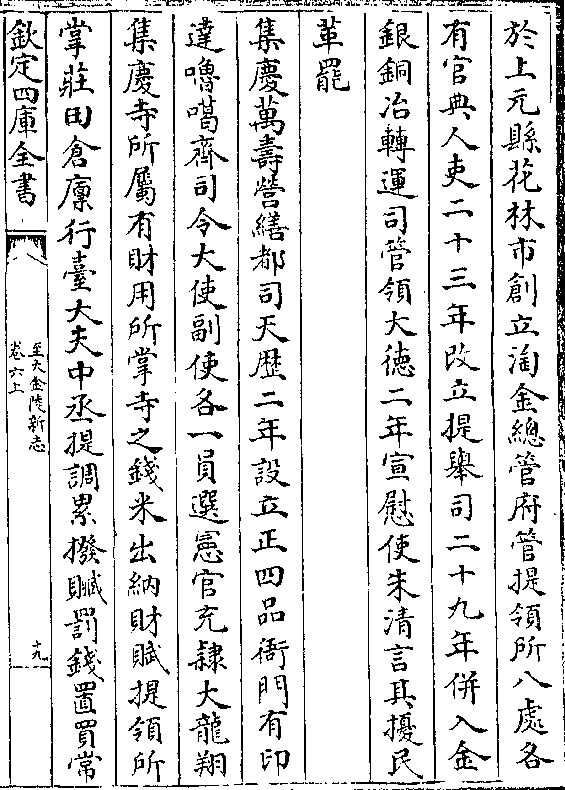 於上元縣花林市創立淘金總管府管提領所八處各
有官典人吏二十三年改立提舉司二十九年併入金
銀銅冶轉運司管領大德二年宣慰使朱清言其擾民
革罷
集慶萬壽營繕都司天歷二年設立正四品衙門有印
達嚕噶齊司令大使副使各一員選憲官充隸大龍翔
集慶寺所屬有財用所掌寺之錢米出納財賦提領所
掌莊田倉廪行臺大夫中丞提調累撥贓罰錢置買常
欽定四庫全書
至大金陵新志
卷六上
十九